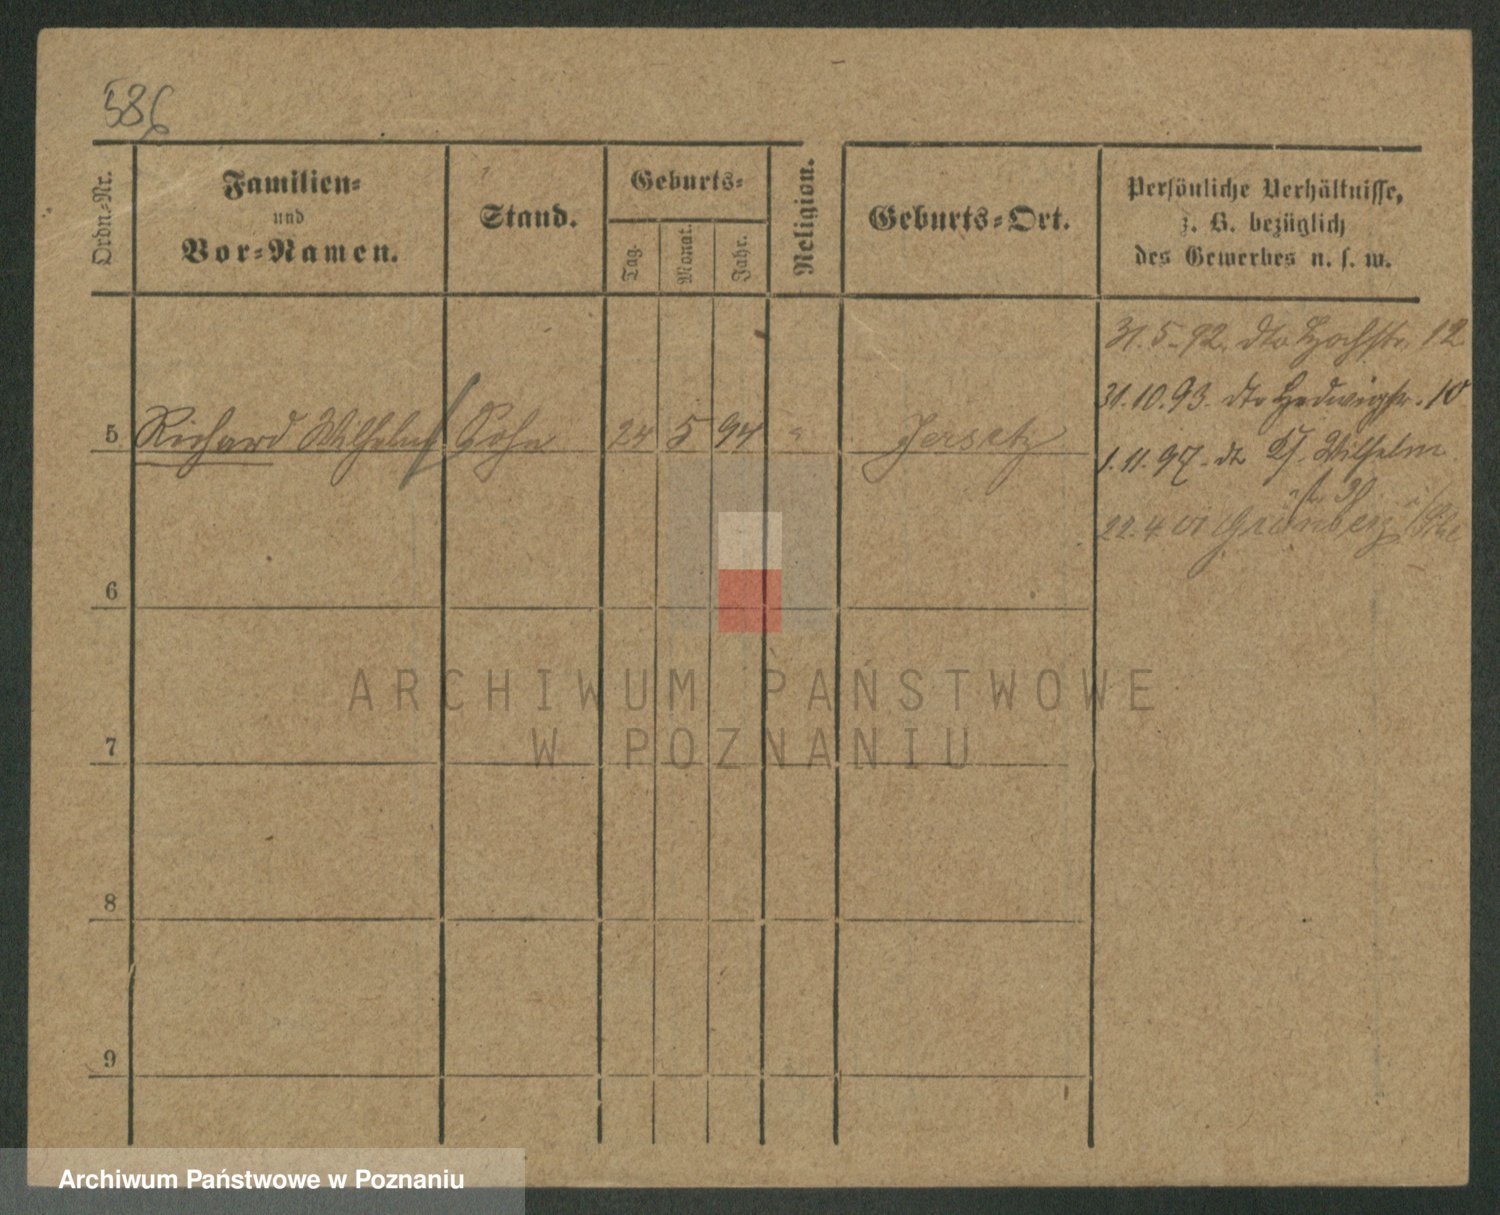 586
Ordn.-Nr.
Familien-
und
Vor-Namen.
Stand.
Geburts-
Tag.
Monat.
Jahr.
Religion.
Geburts-Ort.
Persönliche Verhältnisse,
z. B. bezüglich
des Gewerbes u. s. w.
31.5.92. dto Hochstr. 12
31.10.93. dto Hedwigstr. 10
5 Richard Wilhelm Sohn 24 5 94 " Jersitz
1.11.97. dto Wilhelm
22.4.01 Grünberg
6
7
8
9
ARCHIWUM PAŃSTWOWE
W POZNANIU
Archiwum Państwowe w Poznaniu